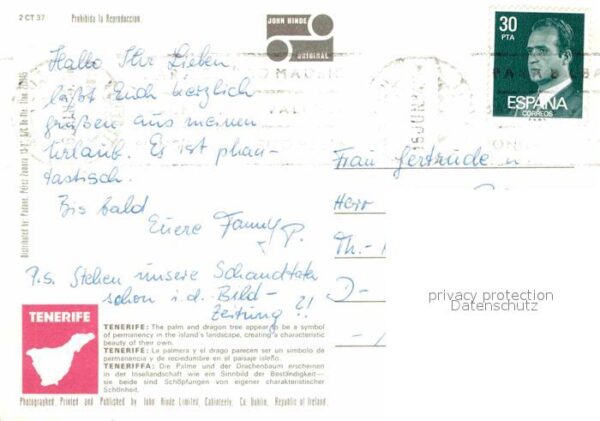 2 CT 37
Prohibida la Reproduccion
JOHN HINDE
ORIGINAL
30
PTA
ESPAÑA
CORREOS
Hallo Ihr Lieben,
laßt Euch herzlich
grüßen aus meinem
Urlaub. Es ist phan-
tastisch.
Bis bald
Eure Fanny P.
P.S. Stehen unsere Schandtaten
schon i.d. Bild-
Zeitung ?!
Frau Gertrude u
Herr
Th.-
D-
privacy protection
Datenschutz
TENERIFE
TENERIFE: The palm and dragon tree appear to be a symbol
of permanency in the island's landscape, creating a characteristic
beauty of their own.
TENERIFE: La palmera y el drago parecen ser un simbolo de
permanencia y de reciedumbre en el paisaje isleño.
TENERIFFA: Die Palme und der Drachenbaum erscheinen
in der Insellandschaft wie ein Sinnbild der Beständigkeit—
sie beide sind Schöpfungen von eigener charakteristischer
Schönheit.
Photographed Printed and Published by John Hinde Limited, Cabinteely, Co. Dublin, Republic of Ireland.